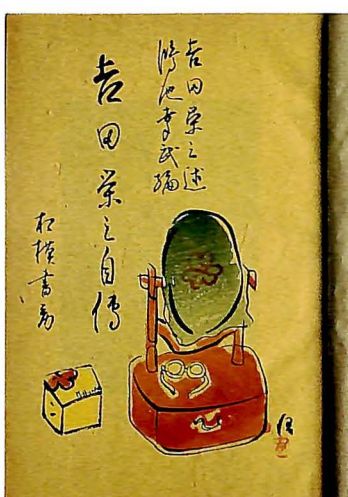 吉田栄三述
鴻池幸武編
吉田栄三自傳
相模書房